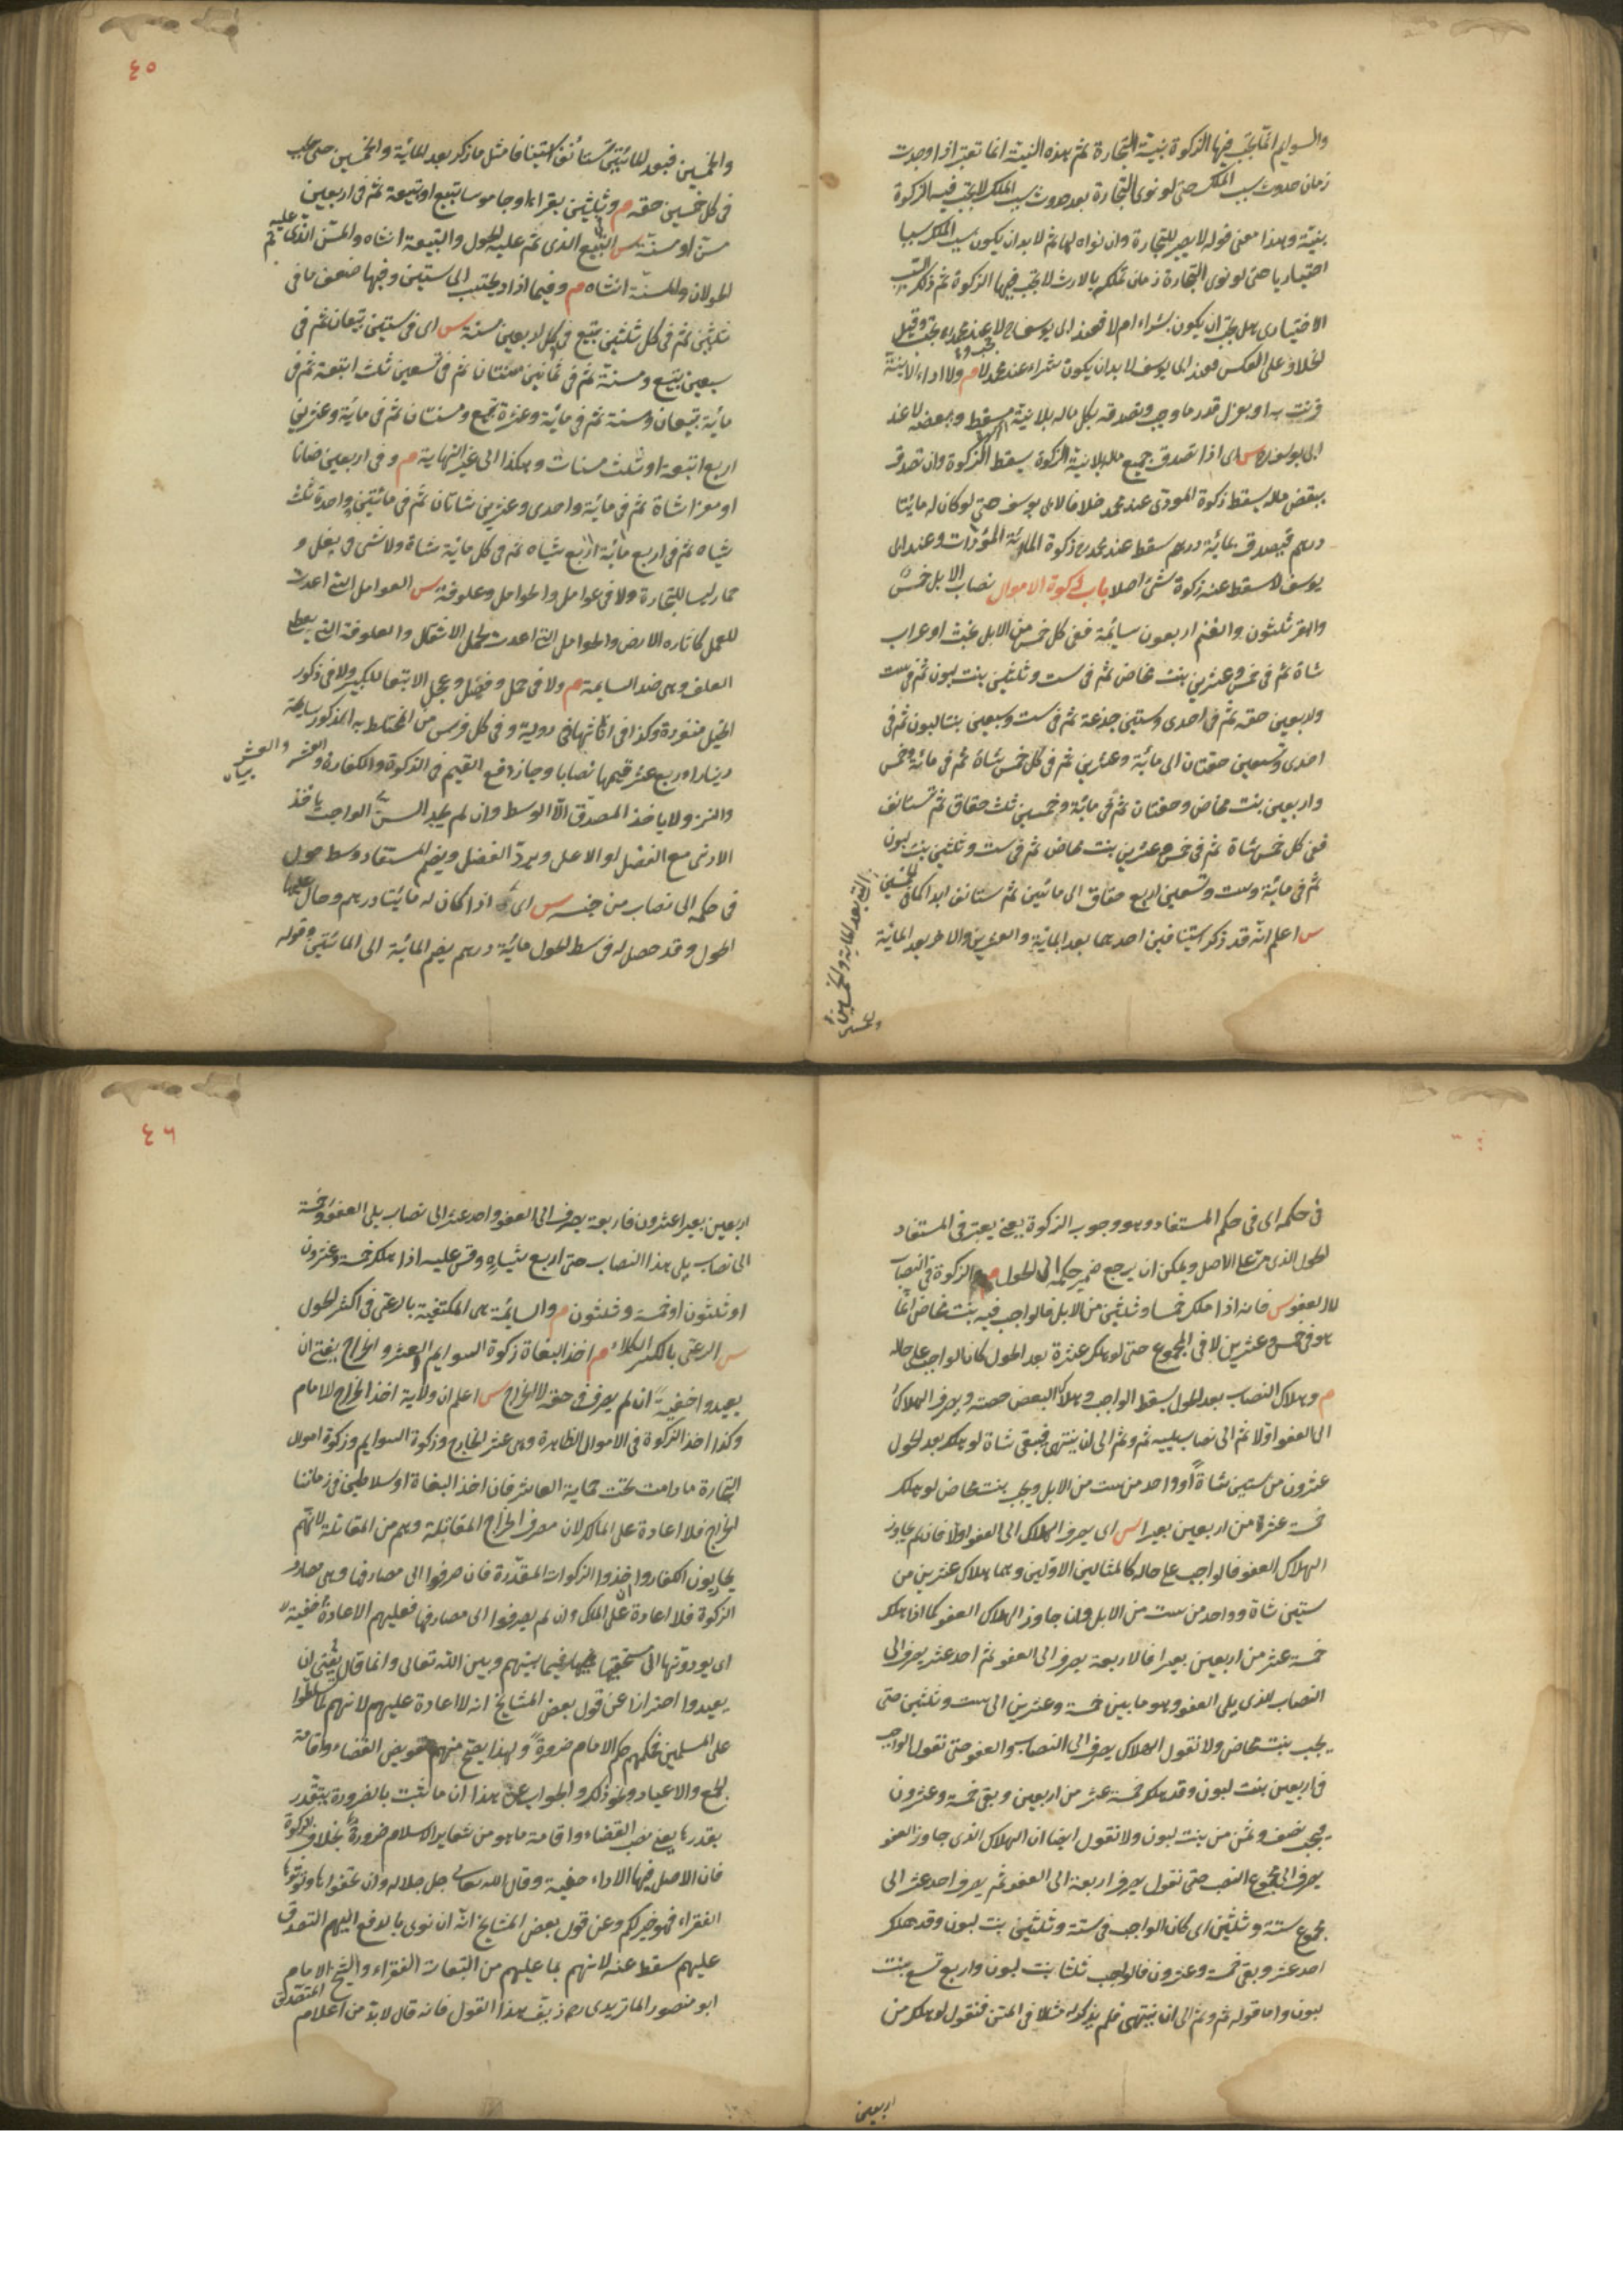 والسوايم انما تجب فيها الزكوة بنية التجارة ثم هذه النية انما تعتبر اذا وجدت
زمان حدوث سبب الملك حتى لو نوى التجارة بعد حدوث سبب الملك لا تجب فيه الزكوة
بنيته وهذا معنى قوله لا يصير للتجارة وان نواه لها ثم لا بد ان يكون سبب الملك سببا
اختياريا حتى لو نوى التجارة زمان تملكه بالارث لا تجب فيها الزكوة ثم ذلك السبب
الاختيارى هل يجب ان يكون شراء ام لا فعند ابى يوسف لا وعند محمد يجب وقيل
الخلاف على العكس فعند ابى يوسف لا بد ان يكون شراء وعند محمد لا م ولا اداء الا بنية
قرنت به او بعزل قدر ما وجب وتصدقه بكل ماله بلا نية مسقط وببعضه لا عند
ابى يوسف س اى اذا تصدق جميع ماله بلا نية الزكوة يسقط الزكوة وان تصدق
ببعض ماله يسقط زكوة المودى عند محمد خلافا لابى يوسف حتى لو كان له مائتا
درهم فتصدق بمائة درهم سقط عند محمد زكوة المائة المؤدات وعند ابى
يوسف لا سقط عنه زكوة شئ اصلا باب زكوة الاموال نصاب الابل خمس
والبقر ثلثون والغنم اربعون سائمة ففى كل خمس من الابل بخت او عراب
شاة ثم فى خمس وعشرين بنت مخاض ثم فى ست وثلثين بنت لبون ثم فى ست
واربعين حقه ثم فى احدى وستين جذعة ثم فى ست وسبعين بنتا لبون ثم فى
احدى وتسعين حقتان الى مائة وعشرين ثم فى كل خمس شاة ثم فى مائة وخمس
واربعين بنت مخاض وحقتان ثم فى مائة وخمسين ثلث حقاق ثم تستانف
ففى كل خمس شاة ثم فى خمس وعشرين بنت مخاض ثم فى ست وثلثين بنت لبون
ثم فى مائة وست وتسعين اربع حقاق الى مائتين ثم تستانف ابدا كما فى الخمسين
التى بعد المائة والخمسين
س اعلم انه قد ذكر استينافين احدهما بعد المائة والعشرين والاخر بعد المائة
والخمسين
٤٥
والخمسين فبعد المائتين تستانف استينافا مثل ما ذكر بعد المائة والخمسين حتى يجب
فى كل خمسين حقه م وثلثين بقرا او جاموسا تبيع او تبيعة ثم فى اربعين
مسن او مسنة س التبيع الذى تم عليه الحول والتبيعة انثاه والمسن الذى تم عليه
الحولان والمسنة انثاه م وفيما زاد يحتسب الى ستين وفيها ضعف ما فى
ثلثين ثم فى كل ثلثين تبيع فى كل اربعين مسنة س اى فى ستين تبيعان ثم فى
سبعين تبيع ومسنة ثم فى ثمانين مسنتان ثم فى تسعين ثلث اتبعة ثم فى
مائة تبيعان ومسنة ثم فى مائة وعشرة تبيع ومسنتان ثم فى مائة وعشرين
اربع اتبعة او ثلث مسنات وهكذا الى غير النهاية م وفى اربعين ضانا
او معزا شاة ثم فى مائة واحدى وعشرين شاتان ثم فى مائتين وواحدة ثلث
شياه ثم فى اربع مائة اربع شياه ثم فى كل مائة شاة ولا شئ فى بغل و
حمار ليسا للتجارة ولا فى عوامل والحوامل وعلوفة س العوامل التى اعدت
للعمل كاثاره الارض والحوامل التى اعدت لحمل الاثقال والعلوفة التى يعطى
العلف وهى ضد السايمة م ولا فى حمل وفصيل وعجل الا تبعا للكبير ولا فى ذكور
الخيل منفردة وكذا فى اناثها فى رواية وفى كل فرس من المختلط به الذكور سايمة
دينار او ربع عشر قيمتها نصابا وجاز دفع القيم فى الزكوة والكفارة والعشر
والنذر ولا ياخذ المصدق الا الوسط وان لم يجد السن الواجب ياخذ
الادنى مع الفضل او الاعلى ويرد الفضل ويضم المستفاد وسط حول
فى حكمه الى نصاب من جنسه س اى اذا كان له مائتا درهم وحال عليها
الحول وقد حصل له فى وسط الحول مائة درهم يضم المائة الى المائتين وقوله
فى حكمه اى فى حكم المستفاد وهو وجوب الزكوة يعنى يعتبر فى المستفاد
الحول الذى مر على الاصل ويمكن ان يرجع ضمير حكمه الى الحول م والزكوة فى النصاب
لا العفو س فانه اذا ملك خمسا وثلثين من الابل فالواجب فيه بنت مخاض انما
هو فى خمس وعشرين لا فى المجموع حتى لو هلك عشرة بعد الحول كان الواجب على حاله
م وهلاك النصاب بعد الحول يسقط الواجب وهلاك البعض حصته ويصرف الهلاك
الى العفو اولا ثم الى نصاب يليه ثم وثم الى ان ينتهى فيبقى شاة لو هلك بعد الحول
عشرون من ستين شاة او واحد من ست من الابل ويجب بنت مخاض لو هلك
خمسة عشرة من اربعين بعيرا س اى يصرف الهلاك الى العفو اولا فان لم يجاوز
الهلاك العفو فالواجب على حاله كالمثالين الاولين وهما هلاك عشرين من
ستين شاة وواحد من ست من الابل وان جاوز الهلاك العفو كما اذا هلك
خمسة عشر من اربعين بعيرا فالاربعة يصرف الى العفو ثم احد عشر يصرف الى
النصاب الذى يلى العفو وهو ما بين خمسة وعشرين الى ست وثلثين حتى
يجب بنت مخاض ولا نقول الهلاك يصرف الى النصاب والعفو حتى نقول الواجب
فى اربعين بنت لبون وقد هلك خمسة عشر من اربعين وبقى خمسة وعشرون
فيجب نصف وثمن من بنت لبون ولا نقول ايضا ان الهلاك الذى جاوز العفو
يصرف الى مجموع النصب حتى نقول يصرف اربعة الى العفو ثم يصرف احد عشر الى
مجموع ستة وثلثين اى كان الواجب فى ستة وثلثين بنت لبون وقد هلك
احد عشر وبقى خمسة وعشرون فالواجب ثلثا بنت لبون واربع تسع بنت
لبون واما قوله ثم وثم الى ان ينتهى فلم يذكر له مثلا فى المتن فنقول لو هلك من
اربعين
٤٦
اربعين بعيرا عشرون فاربعة يصرف الى العفو واحد عشر الى نصاب يلى العفو وخمسة
الى نصاب يلى هذا النصاب حتى اربع شياه وقس عليه اذا هلك خمسة وعشرون
او ثلثون او خمسة وثلثون م والسائمة هى المكتفية بالرعى فى اكثر الحول
س الرعى بالكسر الكلاء م اخذ البغاة زكوة السوايم او العشر والخراج يفتى ان
يعيدوا خفية ان لم يصرف فى حقه لا الخراج س اعلم ان ولاية اخذ الخراج للامام
وكذا اخذ الزكوة فى الاموال الظاهرة وهى عشر الخارج وزكوة السوايم وزكوة اموال
التجارة ما دامت تحت حماية العاشر فان اخذ البغاة او سلاطين فى زماننا
الخراج فلا اعادة على الملاك لان مصرف الخراج المقاتلة وهم من المقاتلة لانهم
يحاربون الكفار واخذوا الزكوات المقدرة فان صرفوا الى مصارفها وهى مصارف
الزكوة فلا اعادة على الملاك وان لم يصرفوا الى مصارفها فعليهم الاعادة خفية
اى يودونها الى مستحقيها فيما بينهم وبين الله تعالى وانما قال يفتى ان
يعيدوا احترازا عن قول بعض المشايخ انه لا اعادة عليهم لانهم لما سلطوا
على المسلمين فحكمهم حكم الامام ضرورة ولهذا يصح منهم تفويض القضاء واقامة
الجمع والاعياد ونحو ذلك والجواب عن هذا ان ما ثبت بالضرورة يتقدر
بقدرها يعنى نصب القضاء واقامة ما هو من شعاير الاسلام ضرورة بخلاف الزكوة
فان الاصل فيها الاداء خفية وقال الله تعالى جل جلاله وان تخفوها وتؤتوها
الفقراء فهو خير لكم وعن قول بعض المشايخ انه ان نوى بالدفع اليهم التصدق
عليهم سقط عنه لانهم بما عليهم من التبعات الفقراء والشيخ الامام
ابو منصور الماتريدى ره زيف هذا القول فانه قال لا بد من اعلام المتصدق